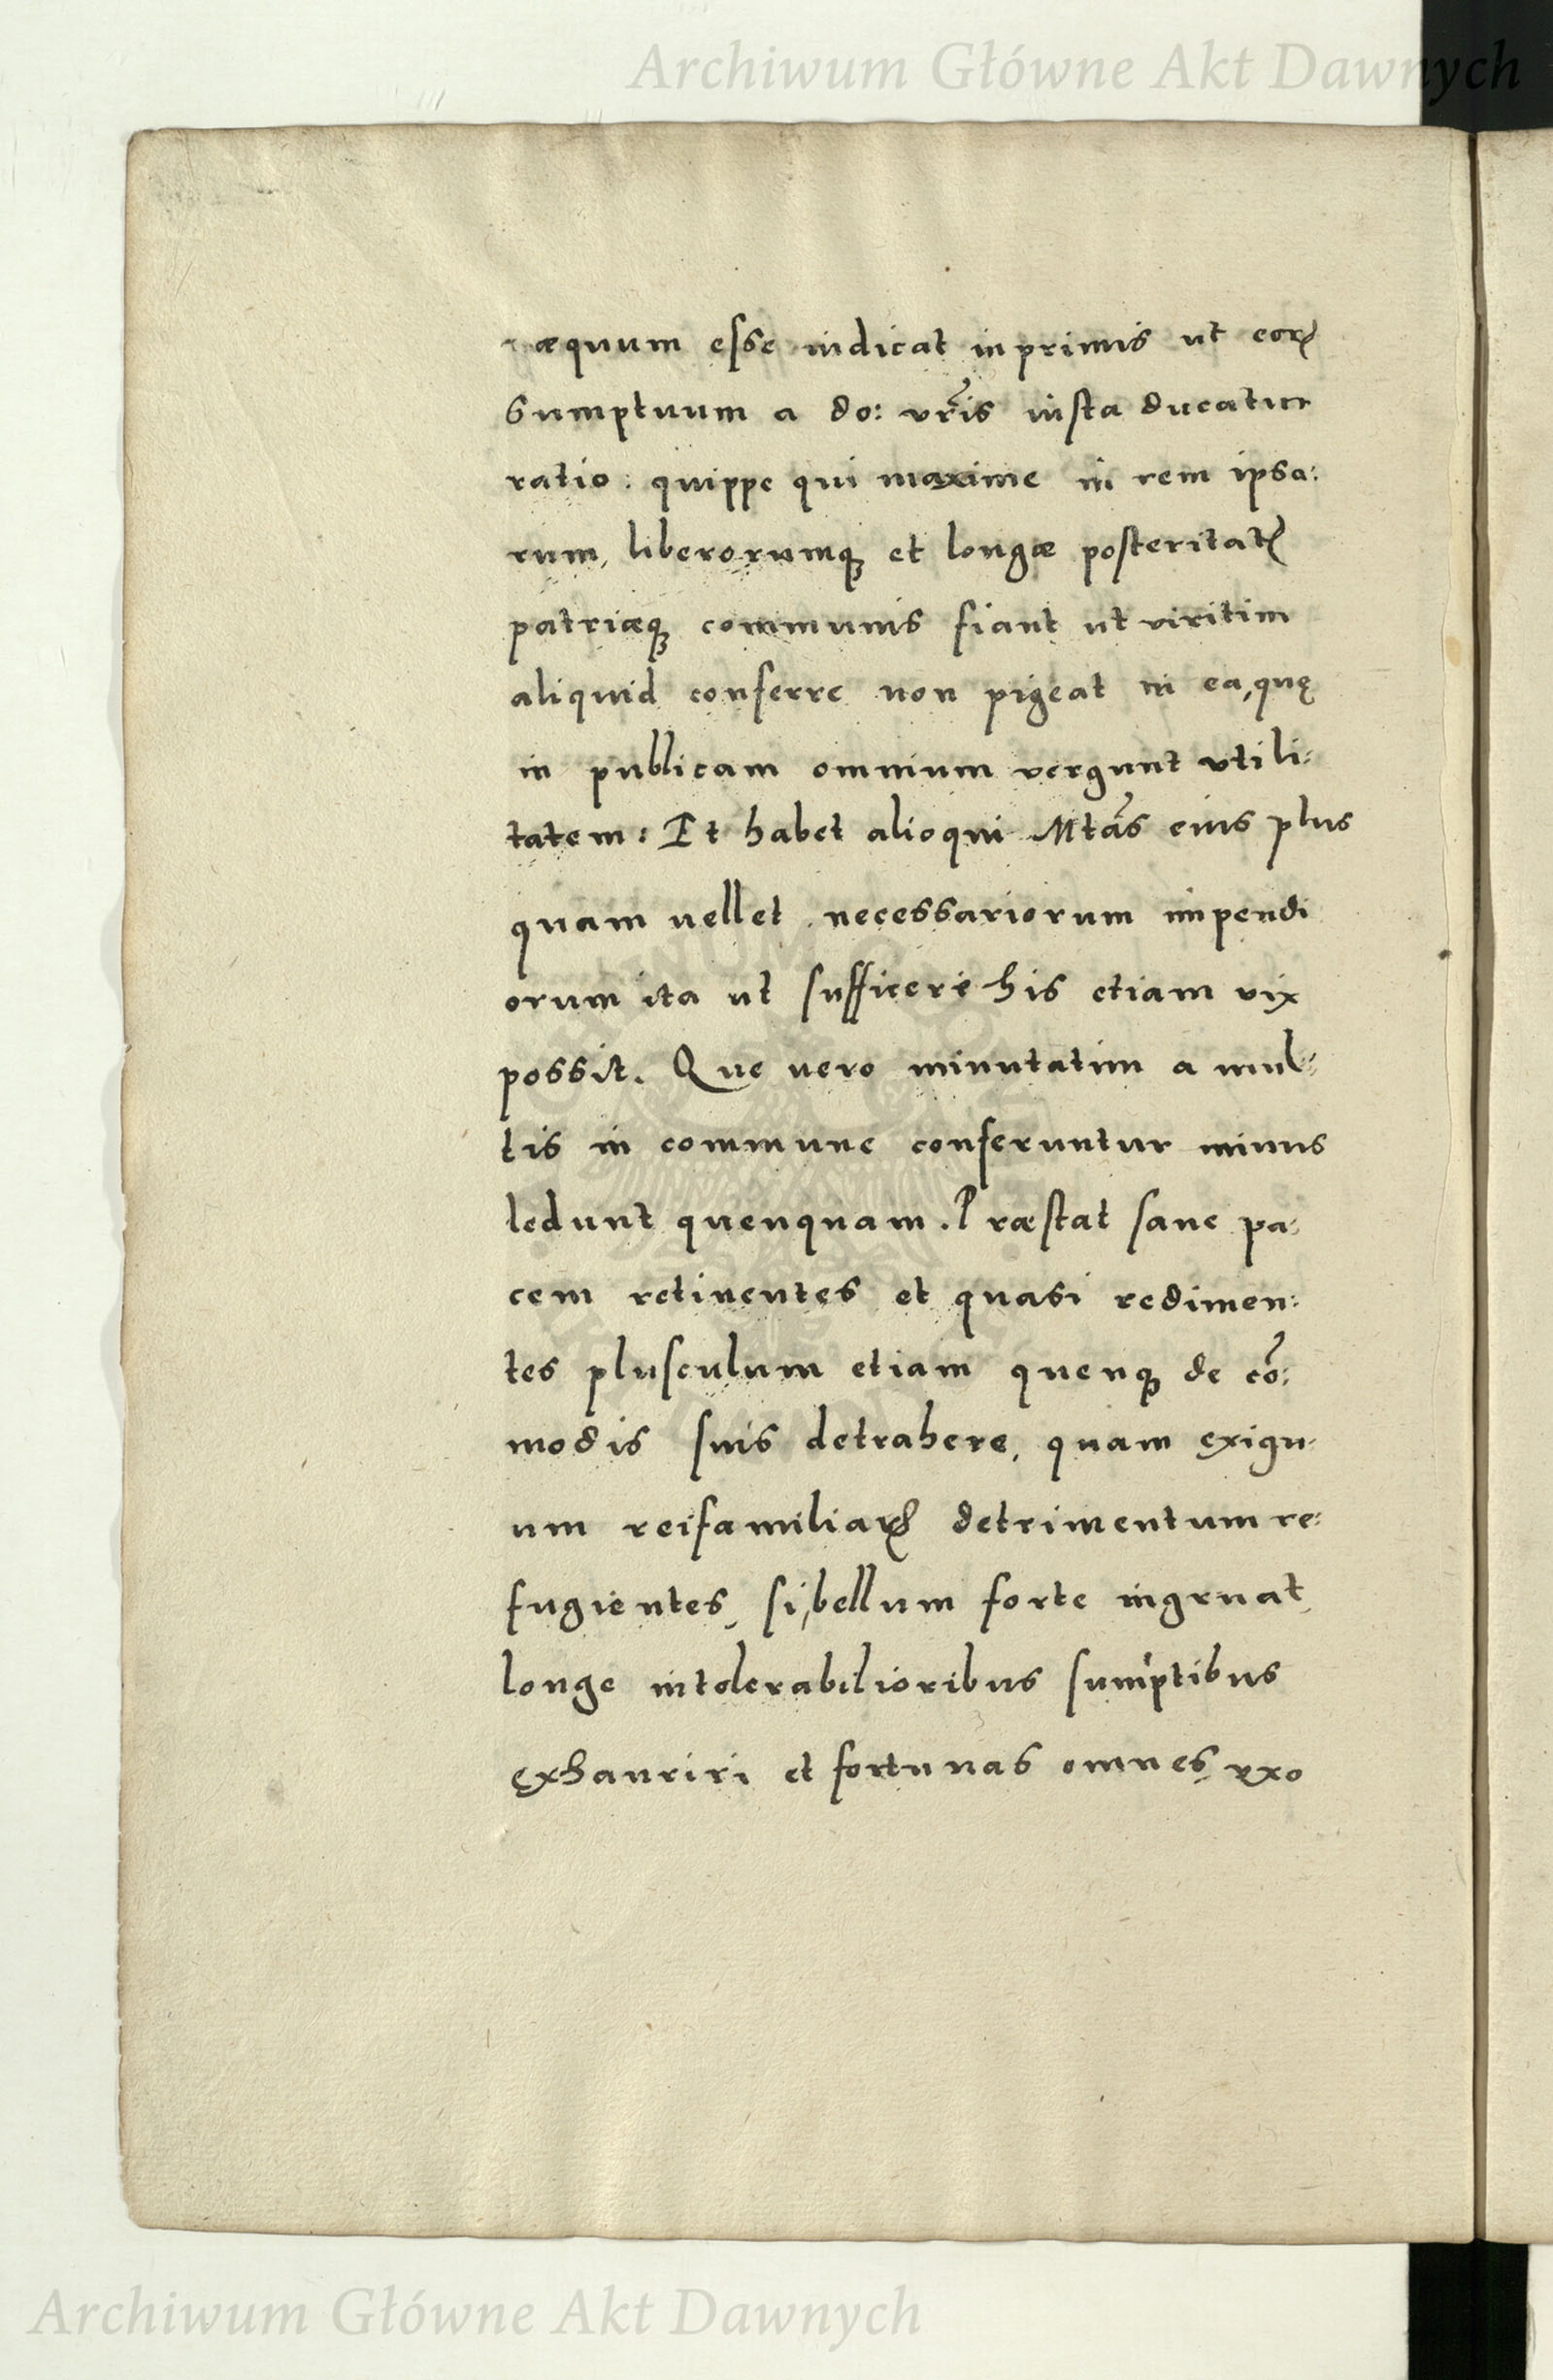 Archiwum Główne Akt Dawnych
æquum eſse iudicat inprimis ut eoꝝ
sumptuum a do: vr̃is iusta ducatur
ratio: quippe qui maxime in rem ipsa:
rum, liberorumqꝫ et longæ poſteritatꝭ
patriæqꝫ communis fiant ut viritim
aliquid conferre non pigeat in ea, quę
in publicam omnium vergunt utili:
tatem: Et habet alioqui Mtãs eius plus
quam vellet necessariorum impendi
orum ita ut ſufficere his etiam vix
possit. Que vero minutatim a mul:
tis in commune conferuntur minus
ledunt quenquam. Præſtat ſane pa:
cem retinentes et quasi redimen:
tes pluſculum etiam quenqꝫ de cõ:
modis ſuis detrahere, quam exigu:
um reifamiliarꝭ detrimentum re:
fugientes, ſi, bellum forte ingruat,
longe intolerabilioribus ſumptibus
exhauriri et fortunas omnes, uxo
Archiwum Główne Akt Dawnych